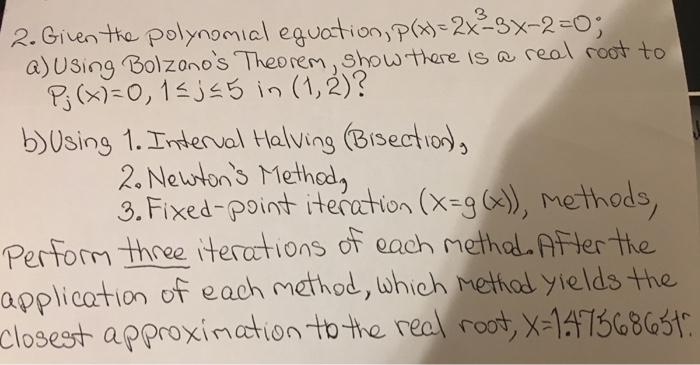 2. Given the polynomial equation, p(x)=2x³-3x-2=0;
a) Using Bolzano's Theorem, show there is a real root to
Pj(x)=0, 1≤j≤5 in (1,2)?
b) Using 1. Interval Halving (Bisection),
2. Newton's Method,
3. Fixed-point iteration (x=g(x)), methods,
Perform three iterations of each method. After the
application of each method, which method yields the
closest approximation to the real root, x=1.475686517?